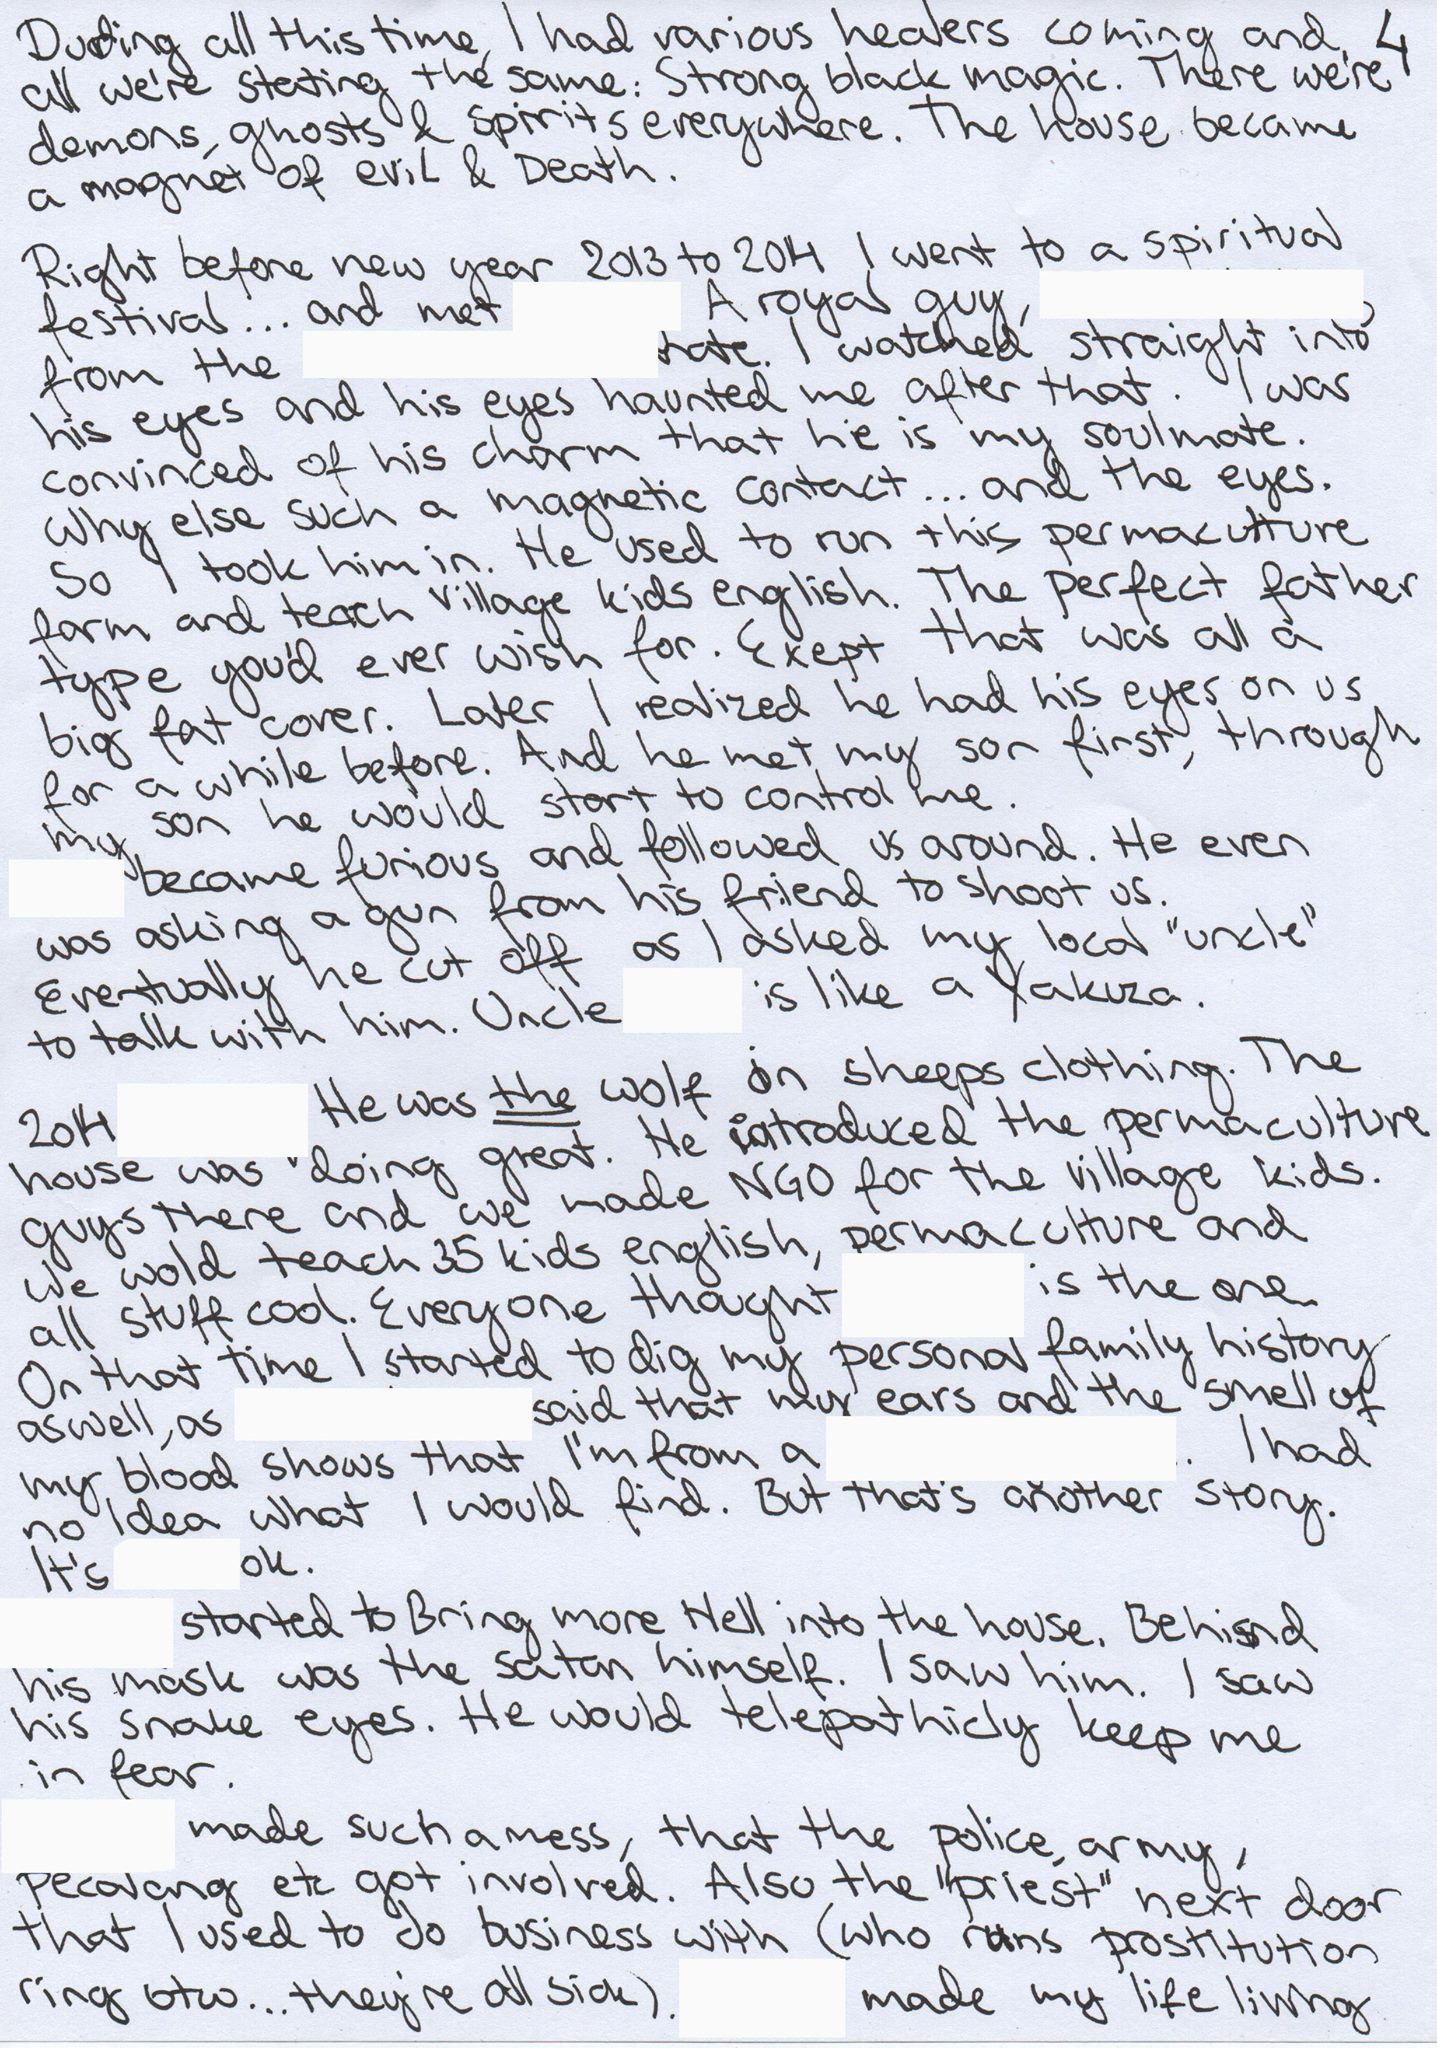 During all this time, I had various healers coming and, 4
all we're stating the same: Strong black magic. There we're
demons, ghosts & spirits everywhere. The house became
a magnet of evil & Death.
Right before new year 2013 to 2014 I went to a spiritual
festival... and met A royal guy,
from the tate. I watched straight into
his eyes and his eyes haunted me after that. I was
convinced of his charm that he is my soulmate.
Why else such a magnetic contact... and the eyes.
So I took him in. He used to run this permaculture
farm and teach village kids english. The perfect father
type you'd ever wish for. Exept that was all a
big fat cover. Later I realized he had his eyes on us
for a while before. And he met my son first, through
my son he would start to control me.
became furious and followed us around. He even
was asking a gun from his friend to shoot us.
Eventually he cut off as I asked my local "uncle"
to talk with him. Uncle is like a Yakuza.
2014 He was the wolf in sheeps clothing. The
house was doing great. He introduced the permaculture
guys there and we made NGO for the village kids.
We wold teach 35 kids english, permaculture and
all stuff cool. Everyone thought is the one.
On that time I started to dig my personal family history
aswell, as said that my ears and the smell of
my blood shows that I'm from a . I had
no Idea what I would find. But that's another story.
It's ok.
started to Bring more Hell into the house. Behind
his mask was the satan himself. I saw him. I saw
his snake eyes. He would telepathicly keep me
in fear.
made such a mess, that the police, army,
pecalang etc got involved. Also the "priest" next door
that I used to do business with (who runs prostitution
ring btw... they're all sick). made my life living